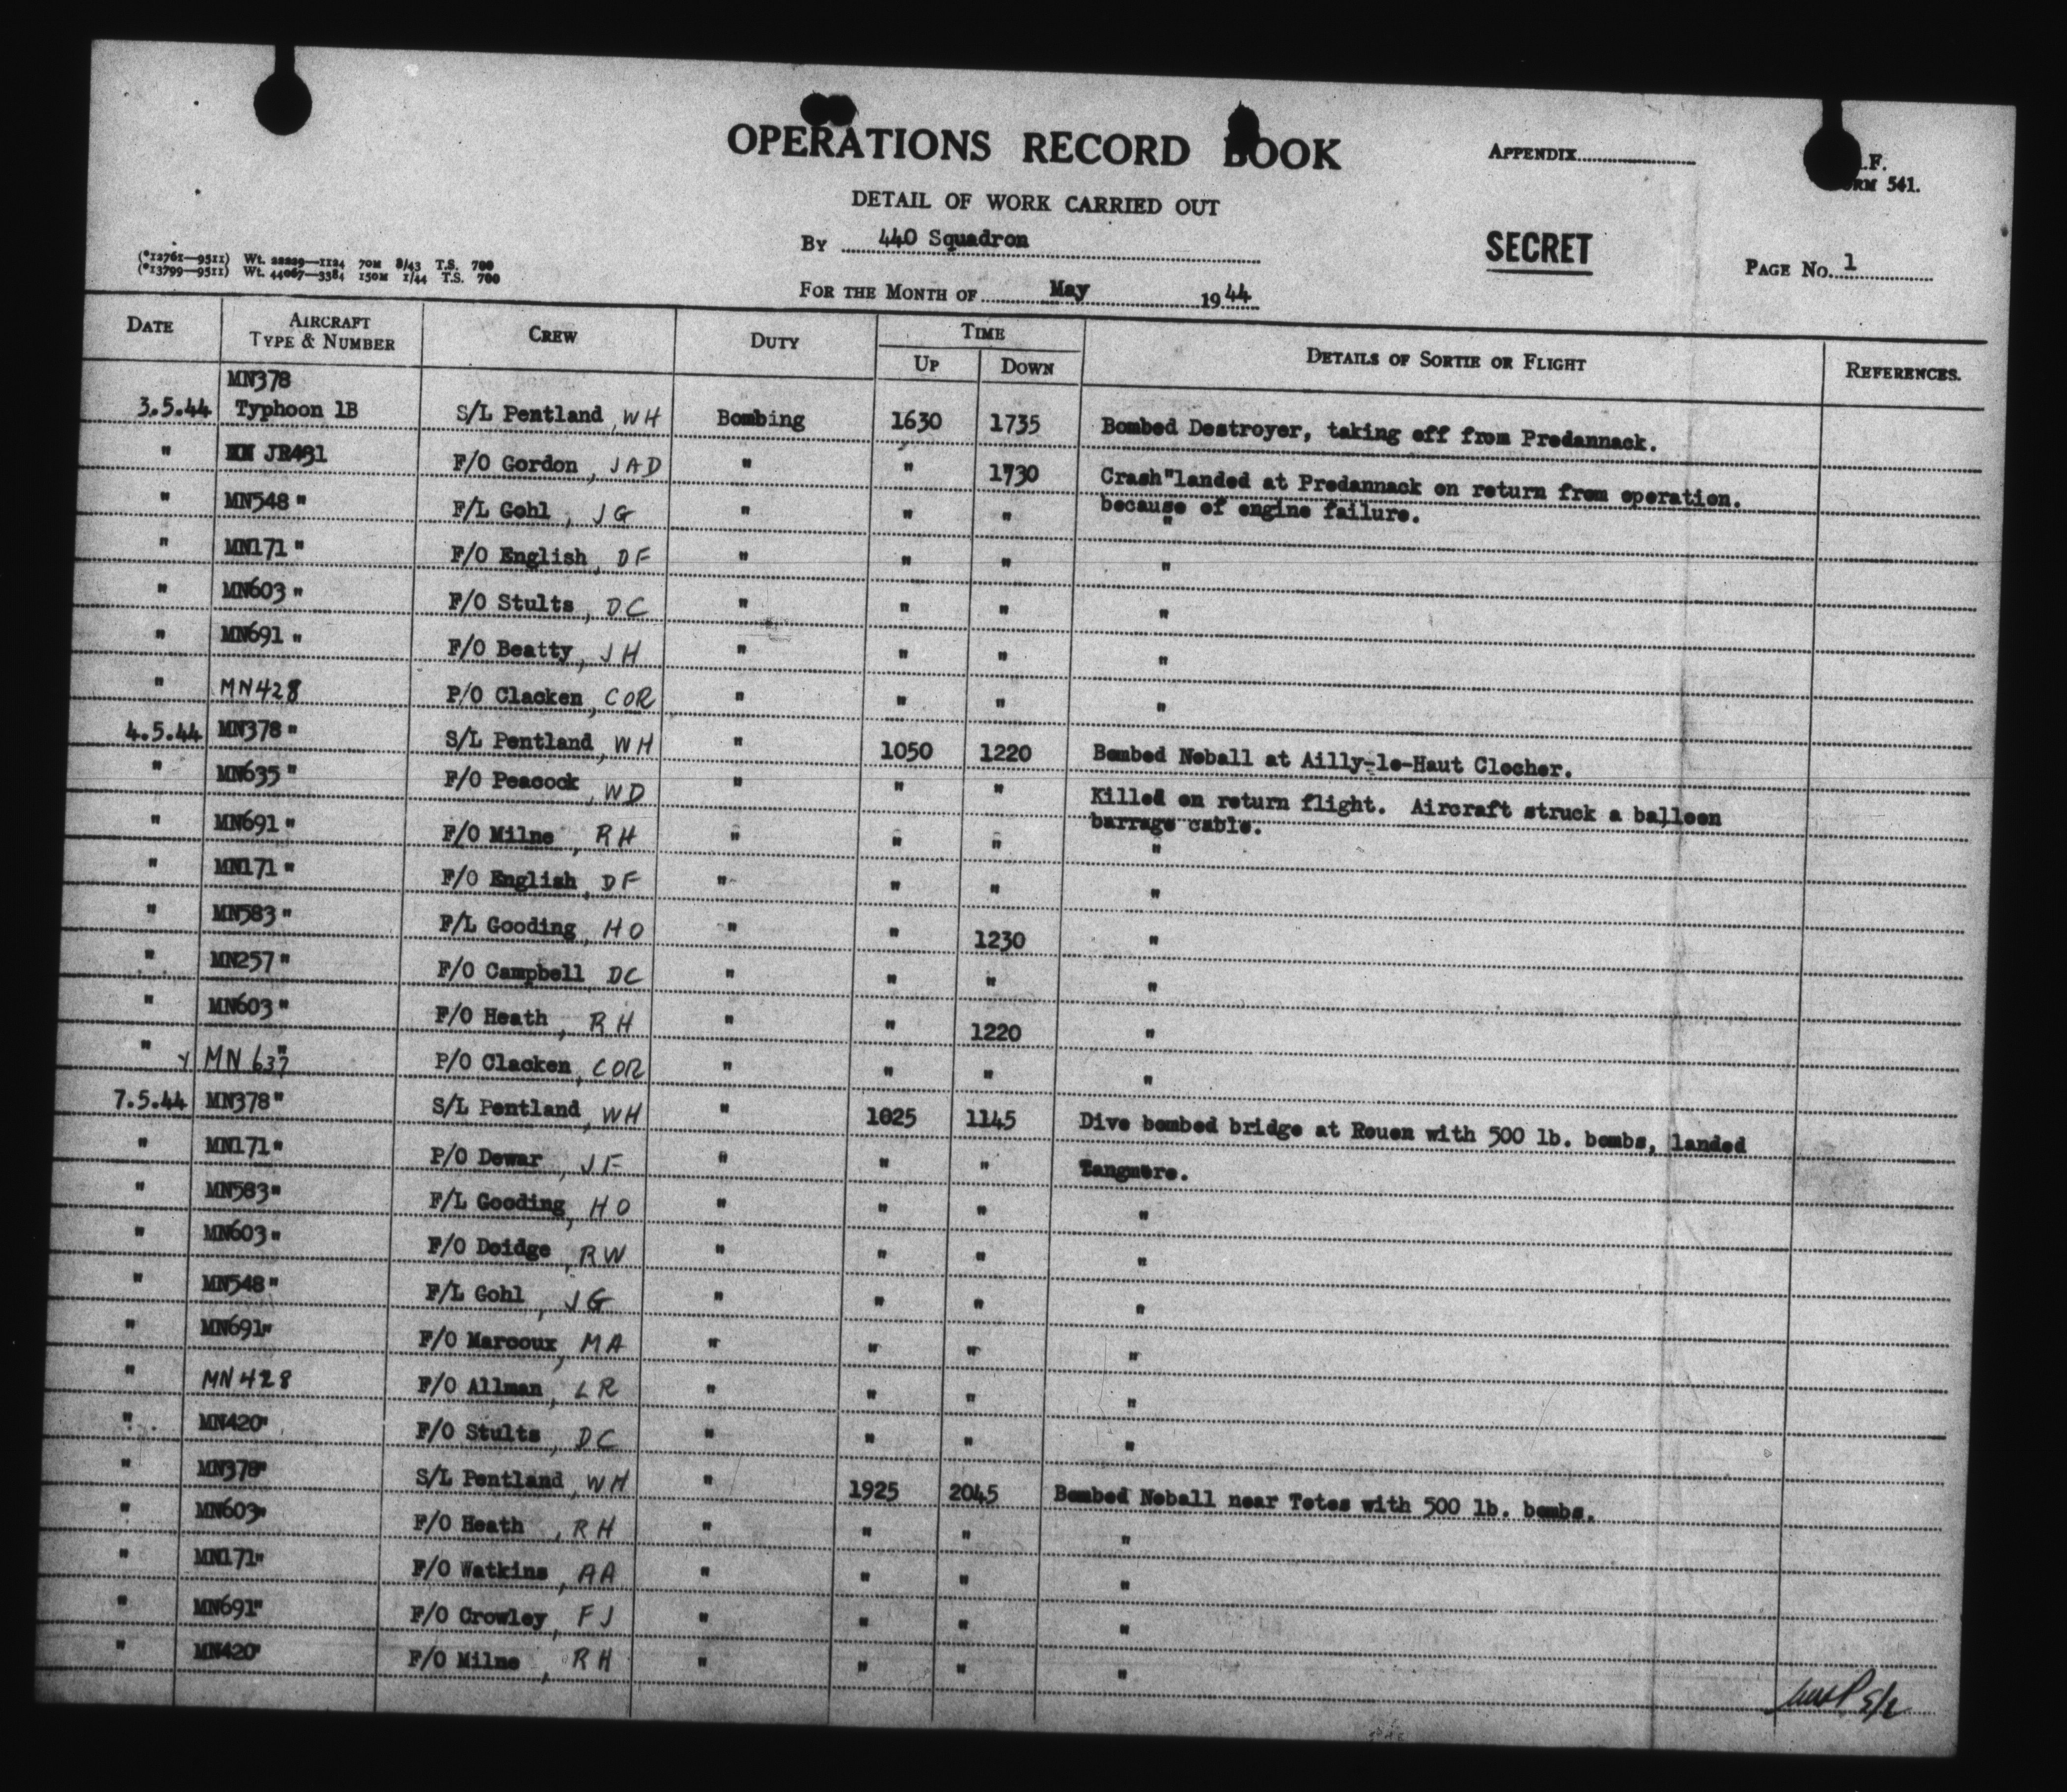 OPERATIONS RECORD BOOK
APPENDIX
.F.
ORM 541.
DETAIL OF WORK CARRIED OUT
BY 440 Squadron
SECRET
PAGE No. 1
(*12761—9511) Wt. 22229—1124 70M 8/43 T.S. 700
(*13799—9511) Wt. 44067—3384 150M 1/44 T.S. 700
FOR THE MONTH OF May 1944
DATE AIRCRAFT TYPE & NUMBER CREW DUTY TIME UP DOWN DETAILS OF SORTIE OR FLIGHT REFERENCES.
MN378
3.5.44 Typhoon 1B S/L Pentland, WH Bombing 1630 1735 Bombed Destroyer, taking off from Predannack.
" JR431 F/O Gordon, JAD " " 1730 Crash"landed at Predannack on return from operation.
because of engine failure.
" MN548 " F/L Gohl, JG " " " "
" MN171 " F/O English, DF " " " "
" MN603 " F/O Stults, DC " " " "
" MN691 " F/O Beatty, JH " " " "
" MN428 P/O Clacken, COR " " " "
4.5.44 MN378 " S/L Pentland, WH " 1050 1220 Bombed Noball at Ailly-le-Haut Clocher.
" MN635 " F/O Peacock, WD " " " Killed on return flight. Aircraft struck a balloon
barrage cable.
" MN691 " F/O Milne, RH " " " "
" MN171 " F/O English, DF " " " "
" MN583 " F/L Gooding, HO " " 1230 "
" MN257 " F/O Campbell, DC " " " "
" MN603 " F/O Heath, RH " " 1220 "
" MN 637 " P/O Clacken, COR " " " "
7.5.44 MN378 " S/L Pentland, WH " 1025 1145 Dive bombed bridge at Rouen with 500 lb. bombs, landed
" MN171 " P/O Dewar, JF " " " Tangmere.
" MN583 " F/L Gooding, HO " " " "
" MN603 " F/O Doidge, RW " " " "
" MN548 " F/L Gohl, JG " " " "
" MN691 " F/O Marcoux, MA " " " "
" MN428 F/O Allman, LR " " " "
" MN420 " F/O Stults, DC " " " "
" MN378 " S/L Pentland, WH " 1925 2045 Bombed Noball near Totes with 500 lb. bombs.
" MN603 " F/O Heath, RH " " " "
" MN171 " F/O Watkins, AA " " " "
" MN691 " F/O Crowley, FJ " " " "
" MN420 " F/O Milne, RH " " " "